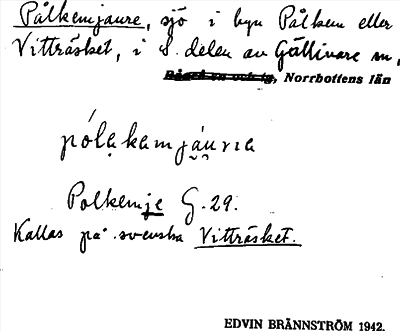 Pålkemjaure, sjö i byn Pålkem eller
Vitträsket, i S. delen av Gällivare sn,
Norrbottens län
pólạkamjáuria
Polkemje G. 29.
Kallas på svenska Vitträsket.
EDVIN BRÄNNSTRÖM 1942.